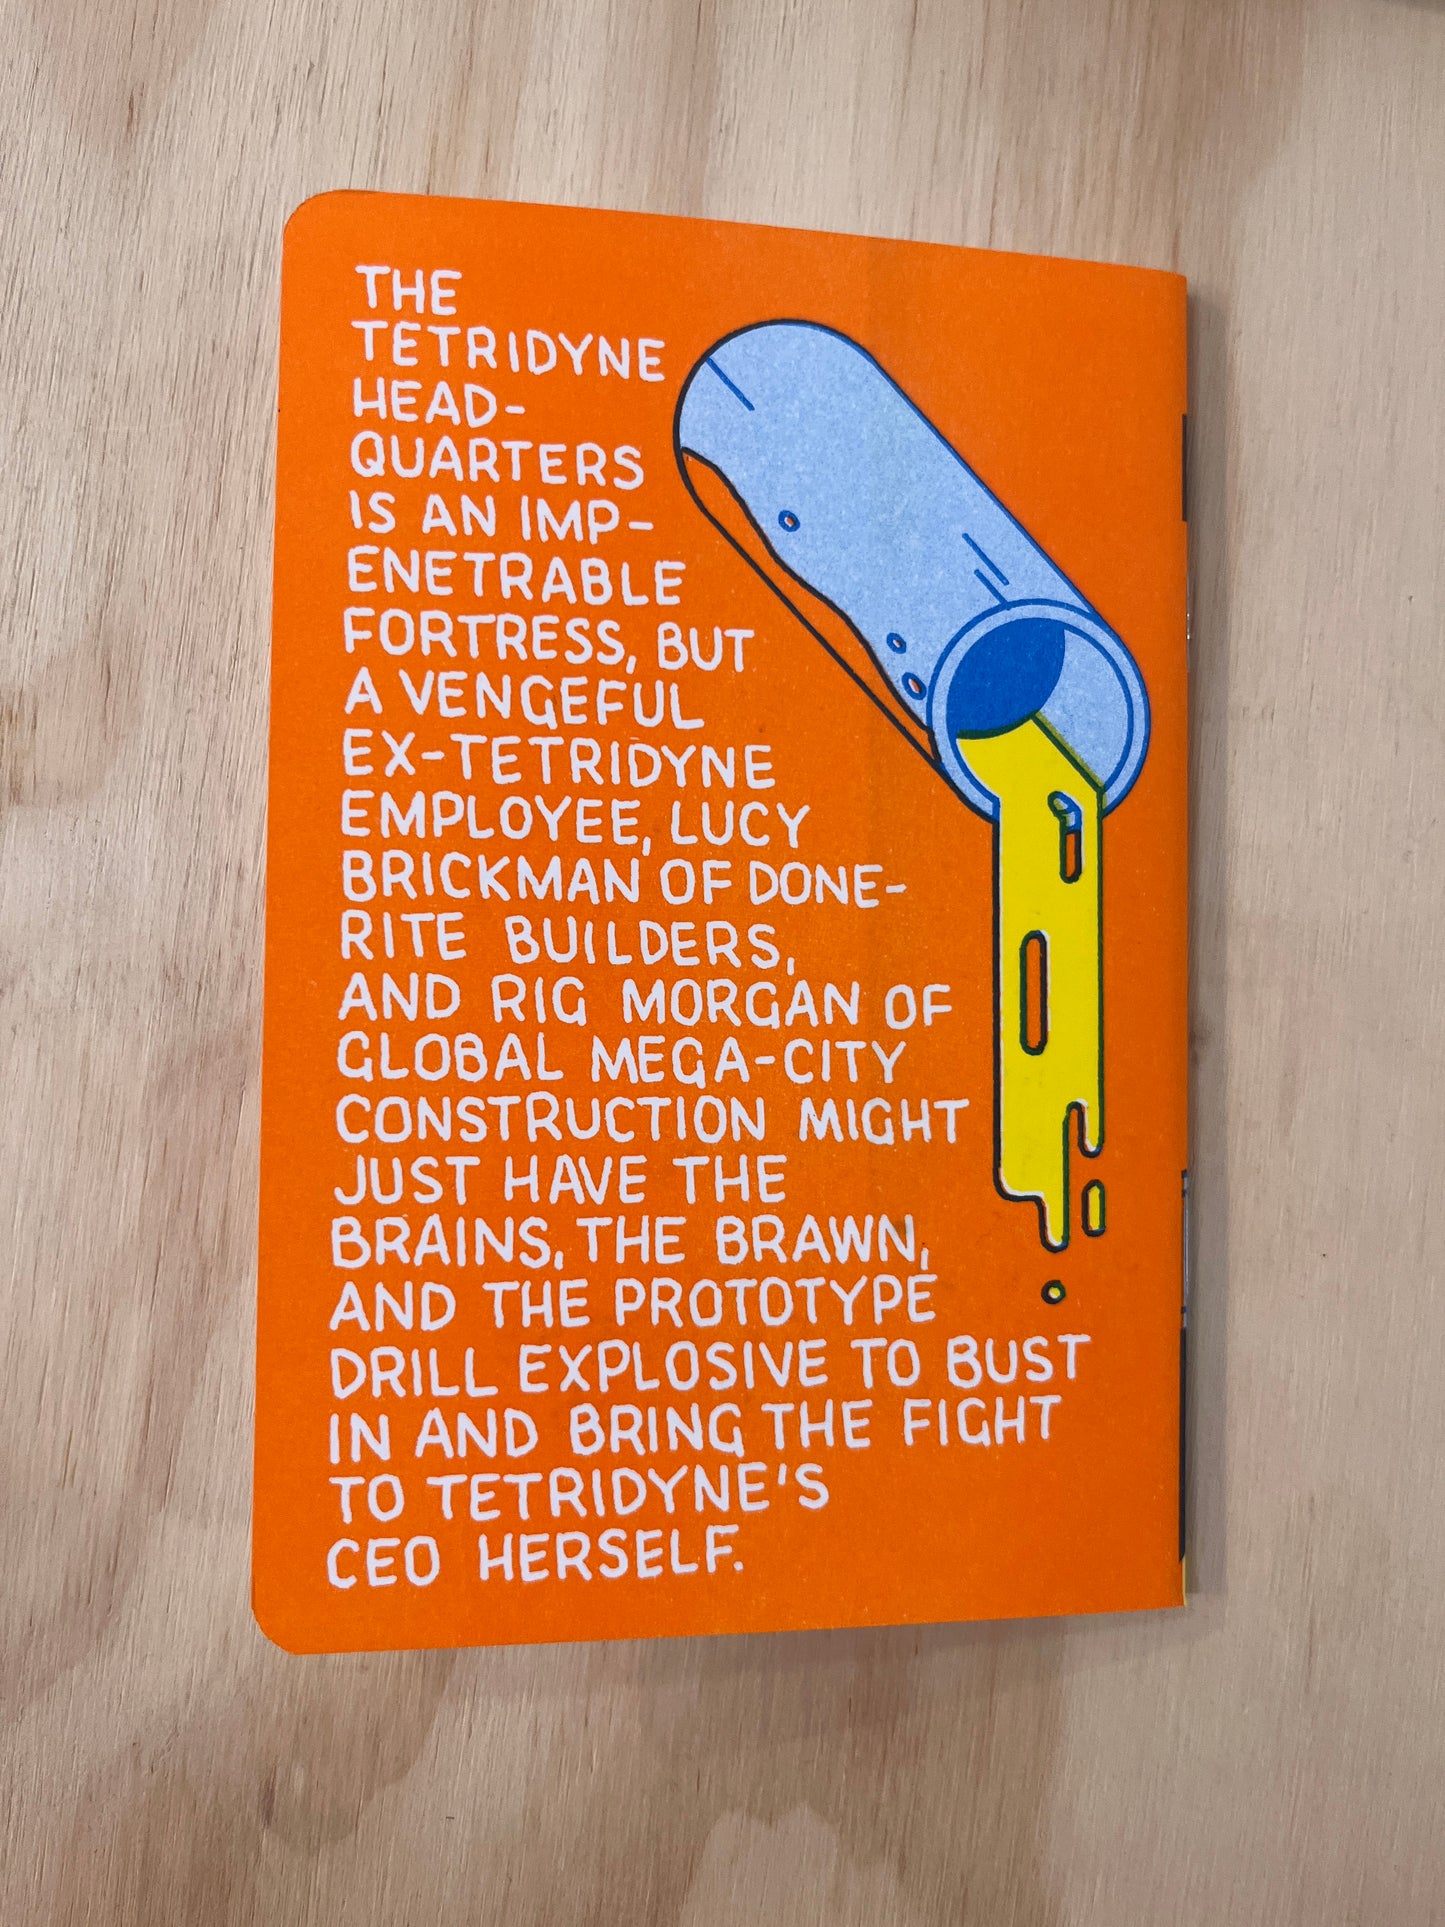 THE
TETRIDYNE
HEAD-
QUARTERS
IS AN IMP-
ENETRABLE
FORTRESS, BUT
A VENGEFUL
EX-TETRIDYNE
EMPLOYEE, LUCY
BRICKMAN OF DONE-
RITE BUILDERS,
AND RIG MORGAN OF
GLOBAL MEGA-CITY
CONSTRUCTION MIGHT
JUST HAVE THE
BRAINS, THE BRAWN,
AND THE PROTOTYPE
DRILL EXPLOSIVE TO BUST
IN AND BRING THE FIGHT
TO TETRIDYNE'S
CEO HERSELF.